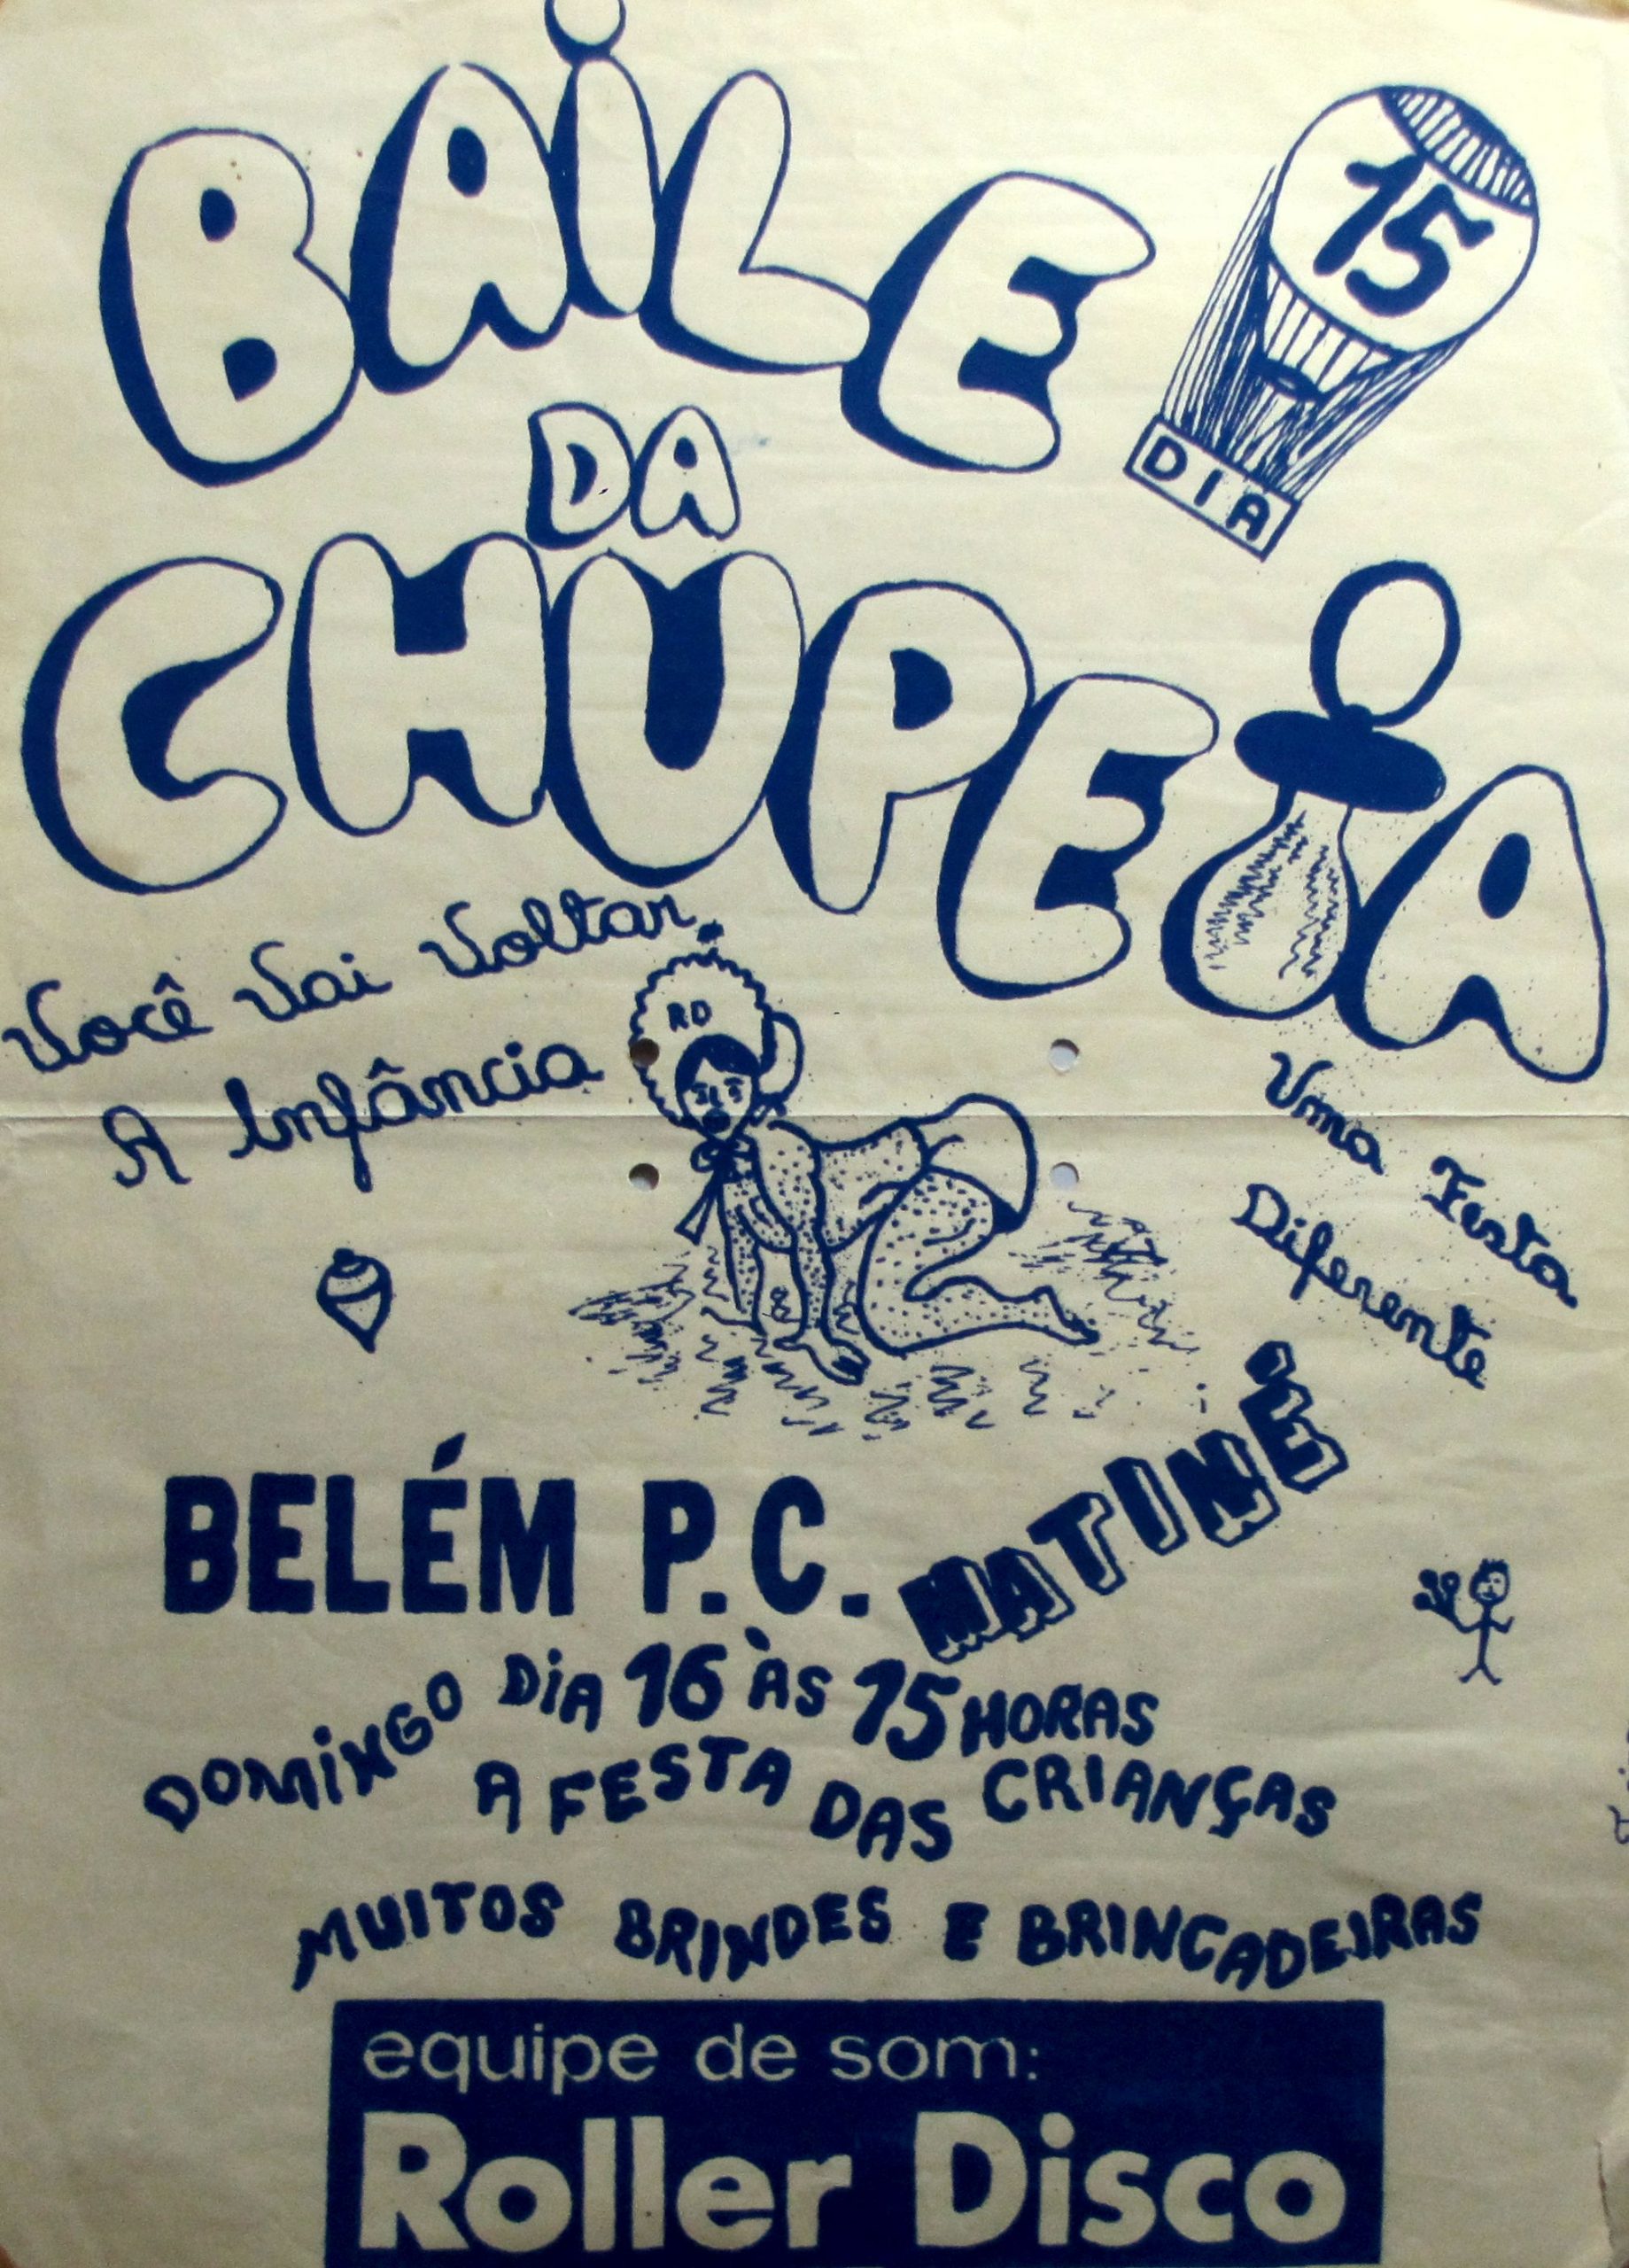 BAiLE
15
DIA
DA
CHUPETA
Você Vai Voltar
A Infância
RD
Uma Festa
Diferente
BELÉM P.C.
MATINÊ
DOMiNGO DiA 16 ÀS 15 HORAS
A FESTA DAS CRIANÇAS
MUITOS BRINDES E BRINCADEIRAS
equipe de som:
Roller Disco